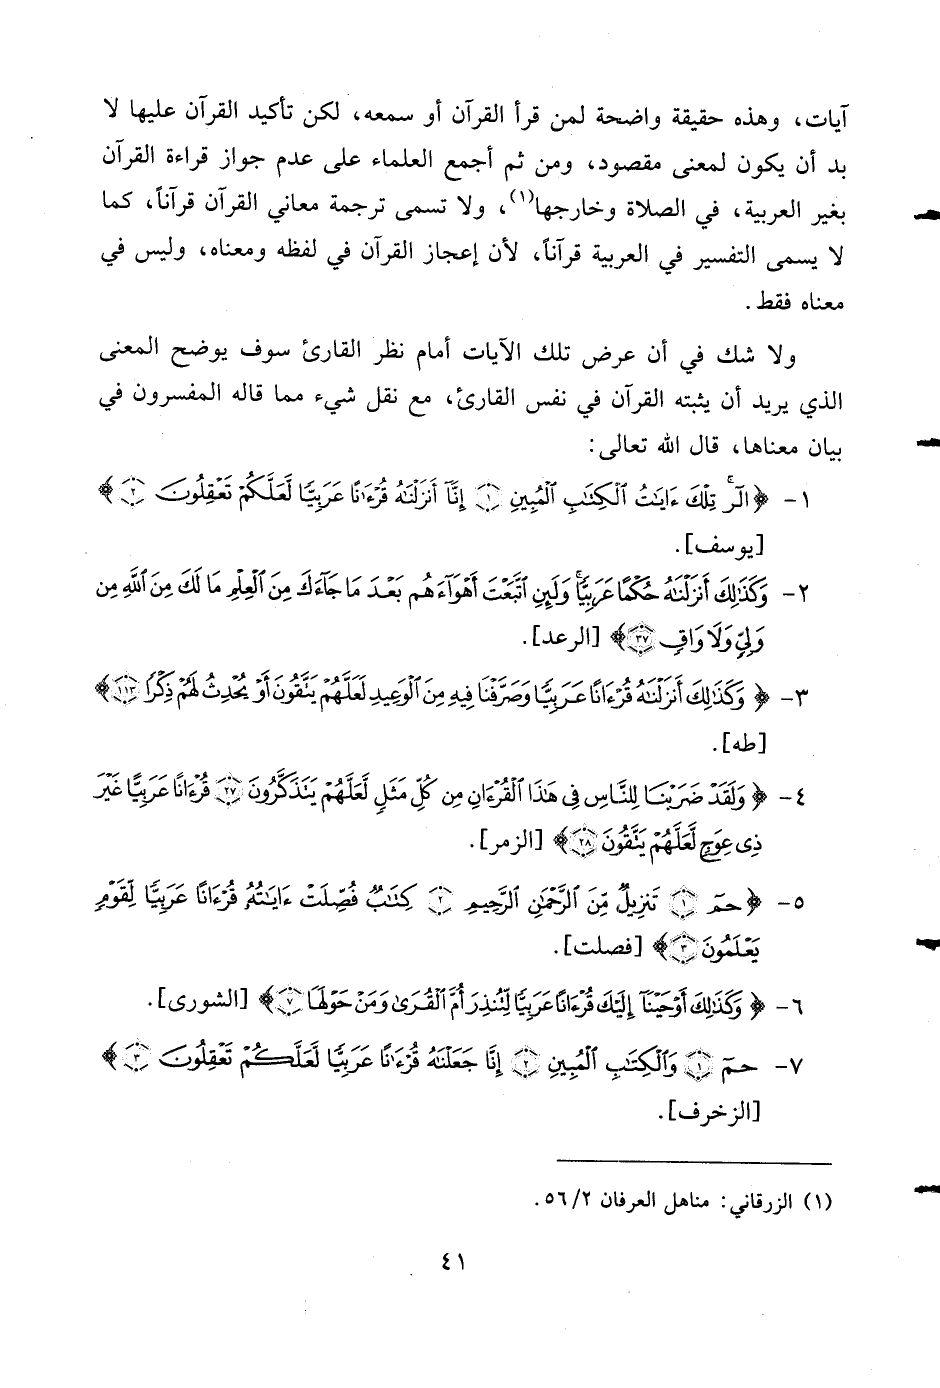 آيات، وهذه حقيقة واضحة لمن قرأ القرآن أو سمعه، لكن تأكيد القرآن عليها لا
بد أن يكون لمعنى مقصود، ومن ثم أجمع العلماء على عدم جواز قراءة القرآن
بغير العربية، في الصلاة وخارجها(١)، ولا تسمى ترجمة معاني القرآن قرآناً، كما
لا يسمى التفسير في العربية قرآناً، لأن إعجاز القرآن في لفظه ومعناه، وليس في
معناه فقط.
ولا شك في أن عرض تلك الآيات أمام نظر القارئ سوف يوضح المعنى
الذي يريد أن يثبته القرآن في نفس القارئ، مع نقل شيء مما قاله المفسرون في
بيان معناها، قال الله تعالى:
١- ﴿الٓرۚ تِلۡكَ ءَايَٰتُ ٱلۡكِتَٰبِ ٱلۡمُبِينِ ١ إِنَّآ أَنزَلۡنَٰهُ قُرۡءَٰنًا عَرَبِيّٗا لَّعَلَّكُمۡ تَعۡقِلُونَ ٢﴾
[يوسف].
٢- وَكَذَٰلِكَ أَنزَلۡنَٰهُ حُكۡمًا عَرَبِيّٗاۚ وَلَئِنِ ٱتَّبَعۡتَ أَهۡوَآءَهُم بَعۡدَ مَا جَآءَكَ مِنَ ٱلۡعِلۡمِ مَا لَكَ مِنَ ٱللَّهِ مِن
وَلِيّٖ وَلَا وَاقٖ ٣٧﴾ [الرعد].
٣- ﴿وَكَذَٰلِكَ أَنزَلۡنَٰهُ قُرۡءَانًا عَرَبِيّٗا وَصَرَّفۡنَا فِيهِ مِنَ ٱلۡوَعِيدِ لَعَلَّهُمۡ يَتَّقُونَ أَوۡ يُحۡدِثُ لَهُمۡ ذِكۡرٗا ١١٣﴾
[طه].
٤- ﴿وَلَقَدۡ ضَرَبۡنَا لِلنَّاسِ فِي هَٰذَا ٱلۡقُرۡءَانِ مِن كُلِّ مَثَلٖ لَّعَلَّهُمۡ يَتَذَكَّرُونَ ٢٧ قُرۡءَانًا عَرَبِيًّا غَيۡرَ
ذِي عِوَجٖ لَّعَلَّهُمۡ يَتَّقُونَ ٢٨﴾ [الزمر].
٥- ﴿حمٓ ١ تَنزِيلٞ مِّنَ ٱلرَّحۡمَٰنِ ٱلرَّحِيمِ ٢ كِتَٰبٞ فُصِّلَتۡ ءَايَٰتُهُۥ قُرۡءَانًا عَرَبِيّٗا لِّقَوۡمٖ
يَعۡلَمُونَ ٣﴾ [فصلت].
٦- ﴿وَكَذَٰلِكَ أَوۡحَيۡنَآ إِلَيۡكَ قُرۡءَانًا عَرَبِيّٗا لِّتُنذِرَ أُمَّ ٱلۡقُرَىٰ وَمَنۡ حَوۡلَهَا ٧﴾ [الشورى].
٧- حمٓ ١ وَٱلۡكِتَٰبِ ٱلۡمُبِينِ ٢ إِنَّا جَعَلۡنَٰهُ قُرۡءَٰنًا عَرَبِيّٗا لَّعَلَّكُمۡ تَعۡقِلُونَ ٣﴾
[الزخرف].
(١) الزرقاني: مناهل العرفان ٥٦/٢.
٤١